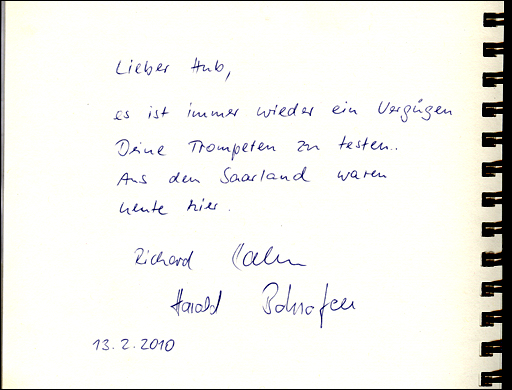 Lieber Hub,
es ist immer wieder ein Vergügen
Deine Trompeten zu testen..
Aus den Saarland waren
heute hier.
Richard
Harald
13.2.2010